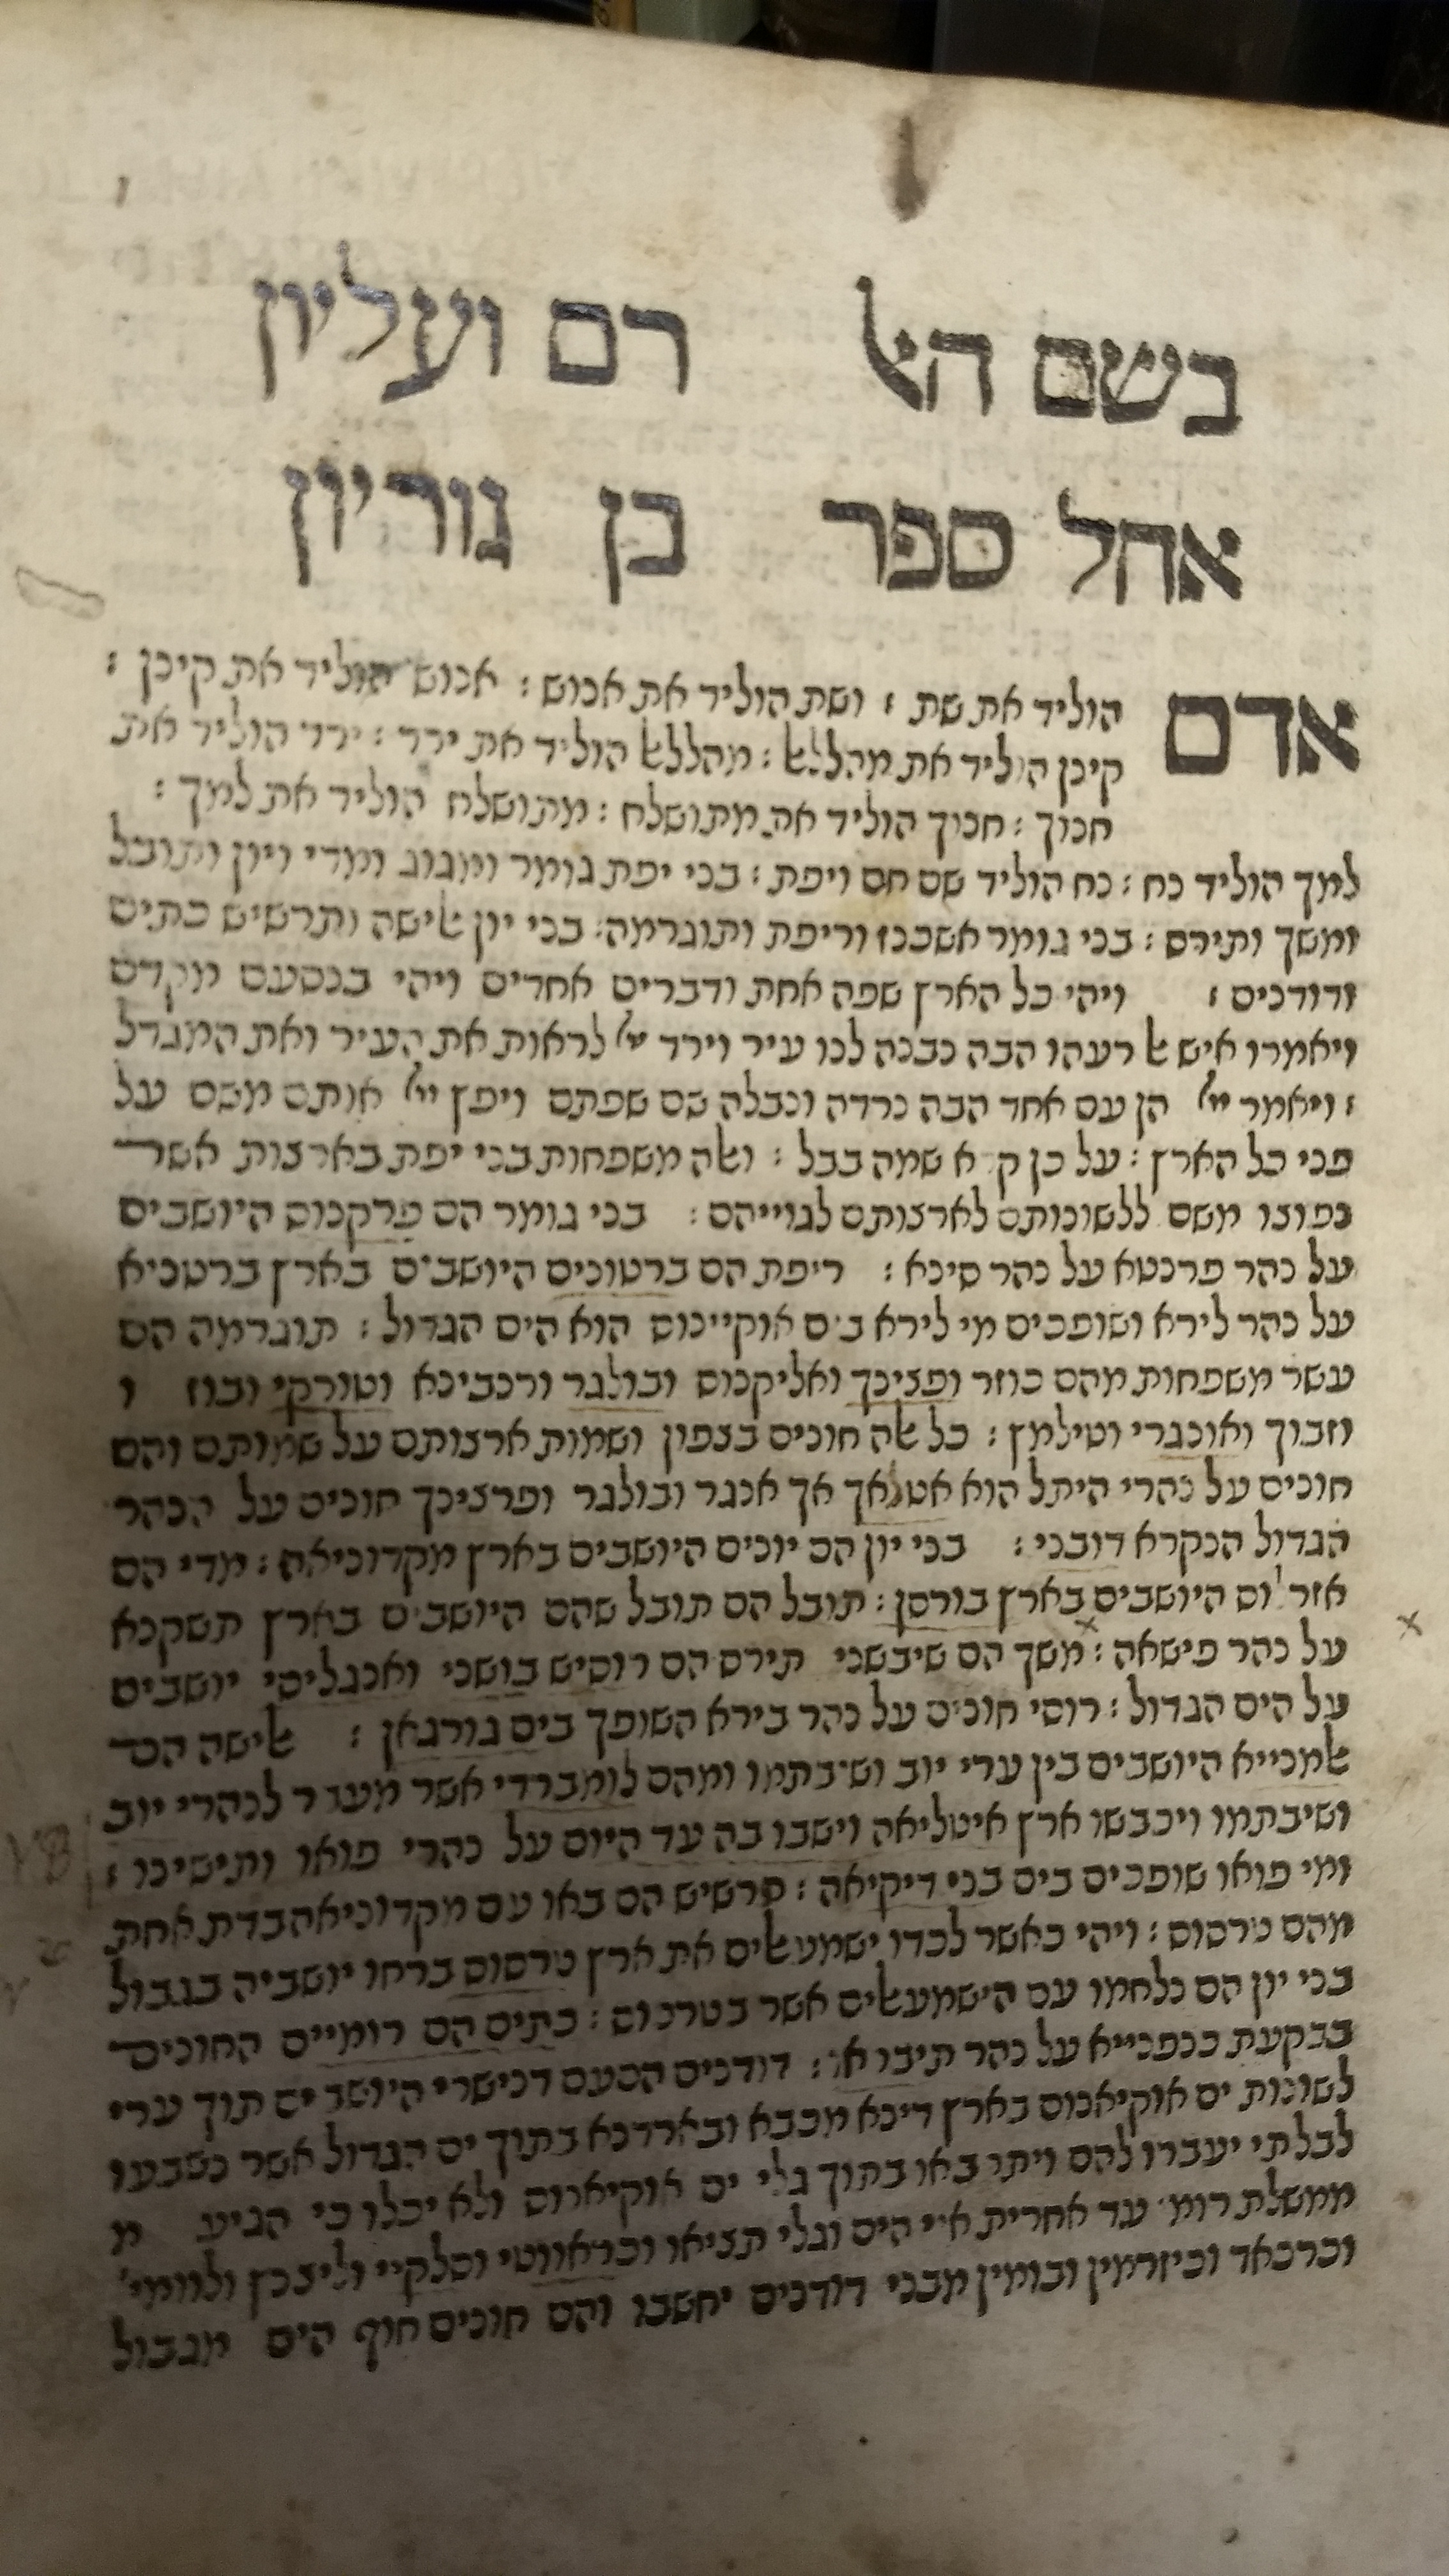 בשם האל רם ועליון
אחל ספר בן גוריון
אדם הוליד את שת : ושת הוליד את אנוש : אנוש הוליד את קינן :
קינן הוליד את מהללאל : מהללאל הוליד את ירד : ירד הוליד את
חנוך : חנוך הוליד את מתושלח : מתושלח הוליד את למך :
למך הוליד נח : נח הוליד שם חם ויפת : בני יפת גומר ומגוג ומדי ויון ותובל
ומשך ותירס : בני גומר אשכנז וריפת ותוגרמה : בני יון אלישה ותרשיש כתים
ודודנים : ויהי כל הארץ שפה אחת ודברים אחדים ויהי בנסעם מקדם
ויאמרו איש אל רעהו הבה נבנה לנו עיר וירד ייל לראות את העיר ואת המגדל
: ויאמר ייל הן עם אחד הבה נרדה ונבלה שם שפתם ויפץ ייל אותם משם על
פני כל הארץ : על כן ק א שמה בבל : ואלה משפחות בני יפת בארצות אשר
נפוצו משם ללשונותם לארצותם לגוייהם : בני גומר הם פרנקוס היושבים
על נהר פרנטא על נהר סינא : ריפת הם ברטונים היושבים בארץ ברטניא
על נהר לירא ושופכים מי לירא בים אוקיינוס הוא הים הגדול : תוגרמה הם
עשר משפחות מהם כוזר ופצינך ואליקנוס ובולגר ורנבינא וטורקי ובוז ו
וזבוך ואונגרי וטילמץ : כל אלה חונים בצפון ושמות ארצותם על שמותם והם
חונים על נהרי היתל הוא אטלאך אך אנגר ובולגר ופרצינך חונים על הנהר
הגדול הנקרא דובני : בני יון הם יונים היושבים בארץ מקדוניאה : מדי הם
היושבים בארץ בורסן : תובל הם תובל שהם היושבים בארץ תשקנא
על נהר פישאה : משך הם שיבשני תירס הם רוסיש בושני ואנגליסי יושבים
על הים הגדול : רוסי חונים על נהר בירא השופך בים גורגאן : אלישה הם
אלמנייא היושבים בין ערי יוב ושיבתמו ומהם לומברדי אשר מעבר לנהרי יוב
ושיבתמו ויכבשו ארץ איטליאה וישבו בה עד היום על נהרי פואו ותישינו :
ומי פואו שופכים בים בני דיקיאה : תרשיש הם באו עם מקדוניאה בדת אחת
מהם טרסוס : ויהי כאשר לכדו ישמעאלים את ארץ טרסוס ברחו יושביה בגבול
בני יון הם נלחמו עם הישמעאלים אשר בטרסוס : כתים הם רומיים החונים
בבקעת כנפנייא על נהר תיבריאו : דודנים הם דנישרי היושבים תוך ערי
לשונות ים אוקיאנוס בארץ דינא מכבא ובארדנא בתוך ים הגדול אשר נשבעו
לבלתי יעברו להם ויתר באו בתוך גלי ים אוקיאנוס ולא יכלו כי הגיע מ
ממשלת רומי עד אחרית איי הים וגלי תציאו וכראווטי וסלקיי וליצכץ ולוומי'
וכרכאד וכיזרמין ובומין מבני דודנים יחשבו והם חונים חוף הים מגבול